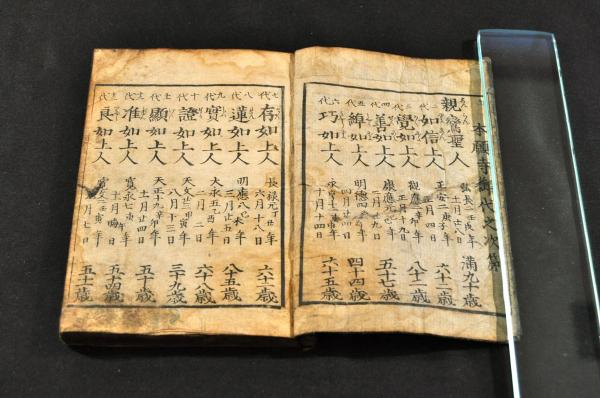 本願寺御代之次第
親鸞聖人 弘長二壬戌年 十一月廿八日 満九十歳
如信上人 正安二庚子年 正月四日 六十二歳
覺如上人 觀應 年 正月十九日 八十二歳
四代 善如上人 康應元 年 二月廿九日 五十七歳
五代 綽如上人 明德四 年 四月廿四日 四十四歳
六代 巧如上人 年 十月十四日 六十五歳
七代 存如上人 長禄元丁丑年 六月十八日 六十二歳
八代 蓮如上人 明應八己未年 三月廿五日 八十五歳
九代 實如上人 大永五乙酉年 二月二日 六十八歳
十代 證如上人 天文廿三甲寅年 八月十三日 三十九歳
代 顯如上人 天正十九辛卯年 十一月廿四日 五十歳
代 准如上人 寛永七庚午年 十一月晦日 五十四歳
代 良如上人 寛文二壬寅年 月七日 五十歳